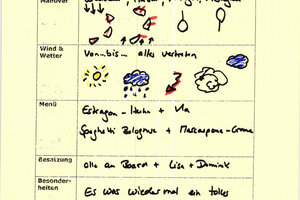 Manöver
Wind & Wetter
Von...bis... alles vertreten
Menü
Estragon-Huhn + Vla
Spaghetti Bolognese + Mascarpone-Creme
Besatzung
alle an Board + Lisa + Dominik
Besonder-
heiten
Es was wieder mal ein tolles